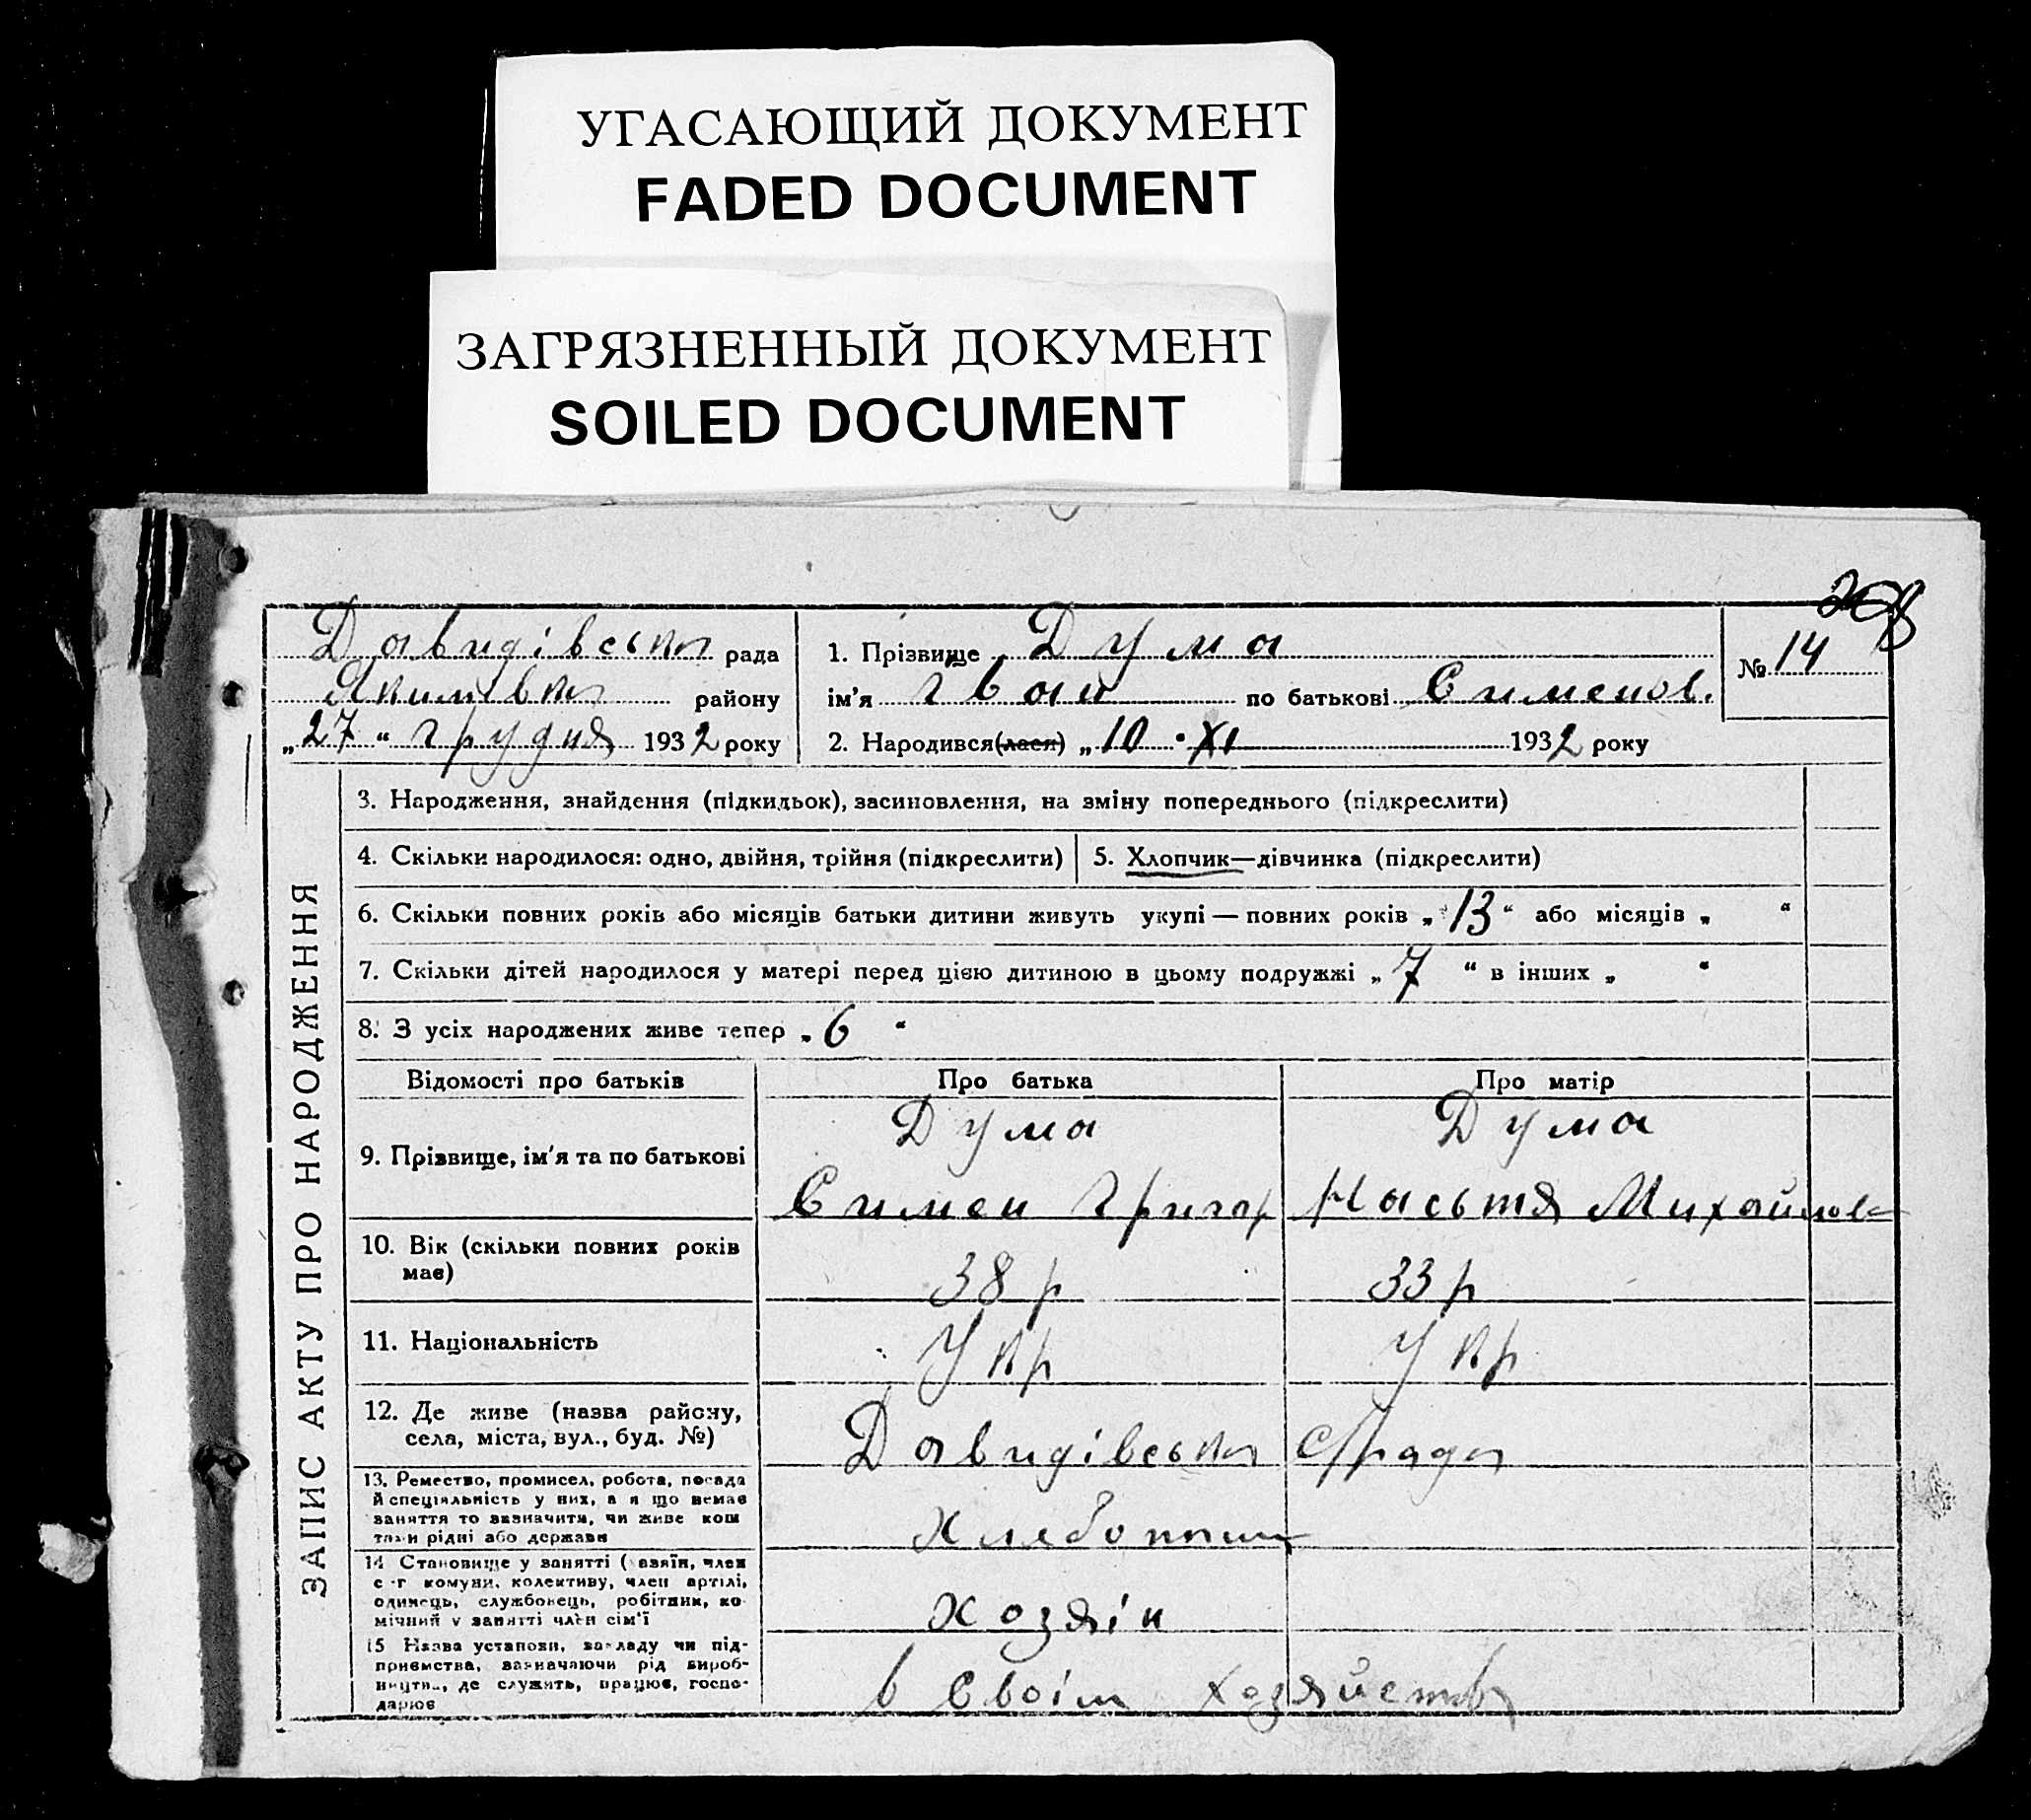 УГАСАЮЩИЙ ДОКУМЕНТ
FADED DOCUMENT
ЗАГРЯЗНЕННЫЙ ДОКУМЕНТ
SOILED DOCUMENT
Давидівська рада
Якимівка району
„27“ грудня 1932 року
1. Прізвище Дума
ім'я Іван по батькові Сименов.
2. Народився(лася) „10 • XI 1932 року
№ 14
ЗАПИС АКТУ ПРО НАРОДЖЕННЯ
3. Народження, знайдення (підкидьок), засиновлення, на зміну попереднього (підкреслити)
4. Скільки народилося: одно, двійня, трійня (підкреслити)
5. Хлопчик—дівчинка (підкреслити)
6. Скільки повних років або місяців батьки дитини живуть укупі — повних років „13“ або місяців „ “
7. Скільки дітей народилося у матері перед цією дитиною в цьому подружжі „7 “ в інших „ “
8. З усіх народжених живе тепер „6 “
Відомості про батьків Про батька Про матір
9. Прізвище, ім'я та по батькові
Дума
Симен Григор
Дума
Насьтя Михайлов
10. Вік (скільки повних років
має)
38 р 33 р
11. Національність Укр Укр
12. Де живе (назва району,
села, міста, вул., буд. №)
Давидівська с/рада
13. Ремество, промисел, робота, посада
й спеціяльність у них, а я що немає
заняття то визначити, чи живе кош
тами рідні або держави
14 Становище у занятті (хазяїн, член
с-г комуни, колективу, член артілі,
одинець, службовець, робітник, ко
мічний у занятті член сім'ї
хозяін
15 Назва установи, закладу чи під-
приємства, зазначаючи рід вироб-
ництва, де служить, працює, госпо-
дарює
в своім хозяйстві